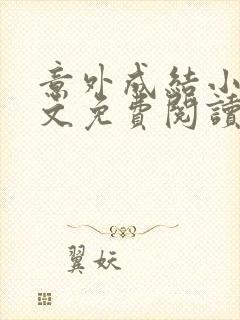 意外成結小
文免費閱讀
翼妖